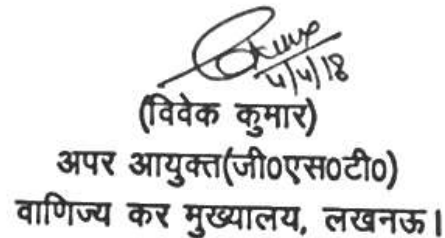 4/4/18
(विवेक कुमार)
अपर आयुक्त(जी०एस०टी०)
वाणिज्य कर मुख्यालय, लखनऊ।